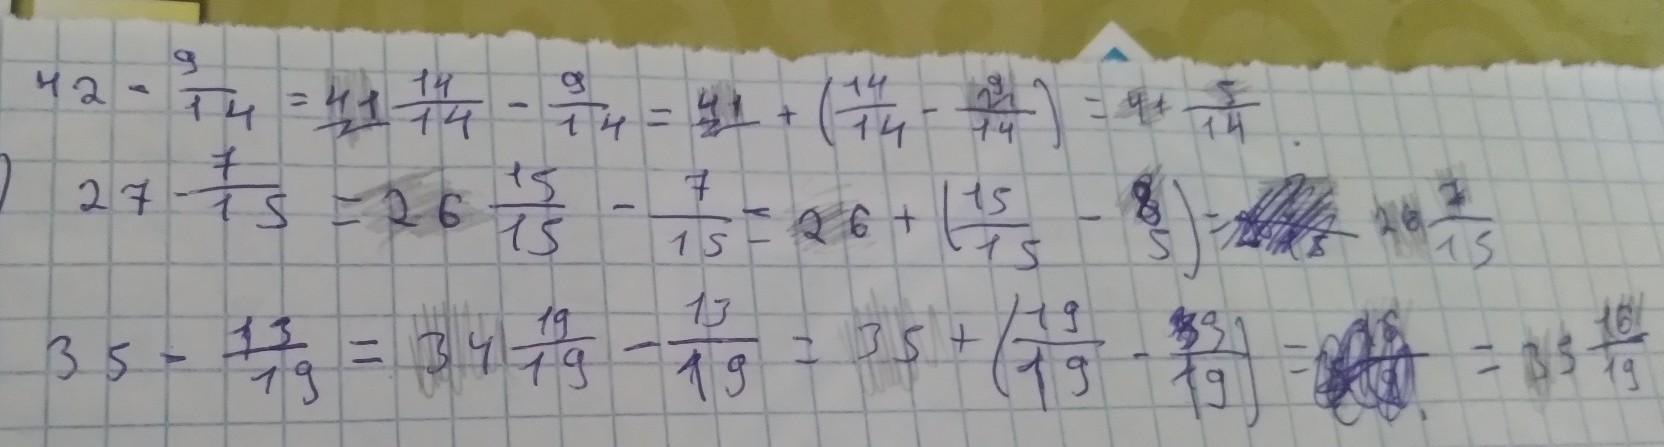 42 - 9/14 = 41 14/14 - 9/14 = 41 + (14/14 - 9/14) = 41 5/14
) 27 - 7/15 = 26 15/15 - 7/15 = 26 + (15/15 - 8/5) = 26 7/15
35 - 13/19 = 34 19/19 - 13/19 = 35 + (19/19 - 39/19) = = 35 16/19